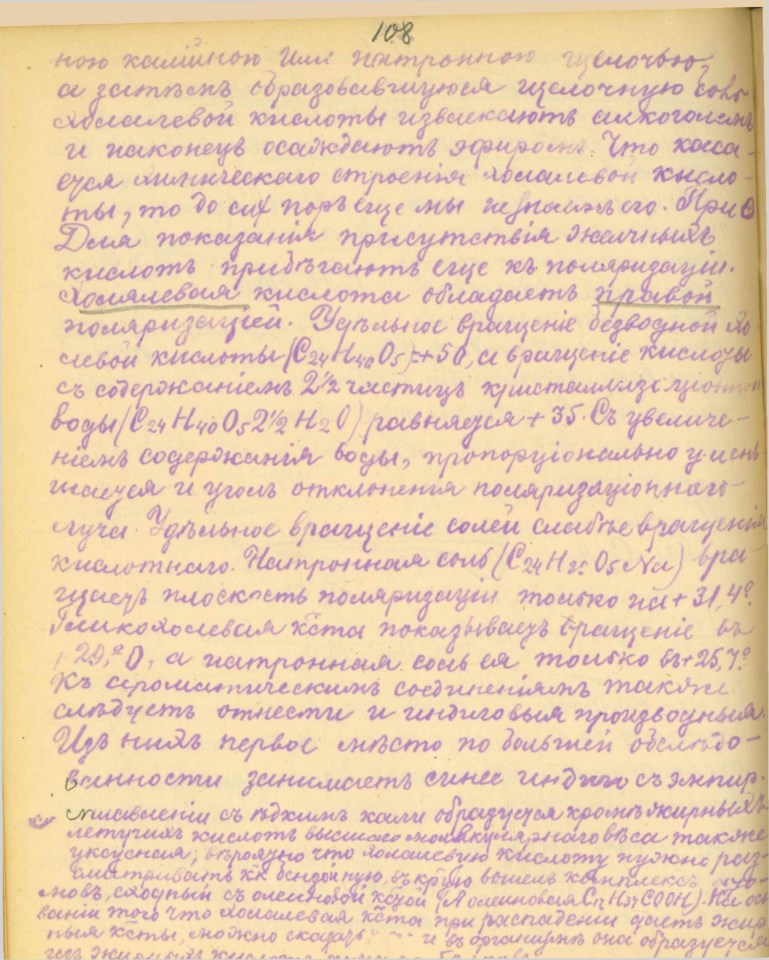 108
ною калійною или натронною щелочью,
а затѣмъ образовавшуюся щелочную соль
холалевой кислоты извлекаютъ алкоголемъ
и наконецъ осаждаютъ эфиромъ. Что каса-
ется химическаго строенія холалевой кисло-
ты, то до сих поръ еще мы не знаемъ его. При
Для показанія присутствія желчныхъ
кислотъ прибѣгаютъ еще къ поляризаціи.
Холалевая кислота обладаетъ правой
поляризаціей. Удѣльное вращеніе безводной хо-
левой кислоты (C24H40O5)=+50, а вращеніе кислоты
съ содержаніемъ 2½ частицъ кристаллизаціонной
воды (C24H40O5 2½ H2O) равняется +35. Съ увеличе-
ніемъ содержанія воды, пропорціонально умень-
шается и уголъ отклоненія поляризаціоннаго
луча. Удѣльное вращеніе солей слабѣе вращенія
кислотнаго. Натронная соль (C24H39O5Na) вра-
щаетъ плоскость поляризаціи только на +31,4°.
Гликохолевая кта показываетъ вращеніе въ
29,°0, а натронная соль ея только въ +25,7°.
Къ ароматическимъ соединеніямъ также
слѣдуетъ отнести и индиговыя производныя.
Изъ нихъ первое мѣсто по большей обслѣдо-
ванности занимаетъ синее индиго съ эмпир.
сплавленіи съ ѣдкимъ кали образуется кромѣ жирныхъ
летучихъ кислотъ высшаго молекулярнаго вѣса также
уксусная; вѣроятно что холалевую кислоту нужно раз-
сматривать къ бензойную, въ крую вошелъ комплексъ
мовъ, сходный съ олеиновой кстой (C17H33COOH). На ос-
ваніи того что холалевая кта при распаденіи даетъ жир-
ныя ксты, можно сказать и въ организмѣ она образуется